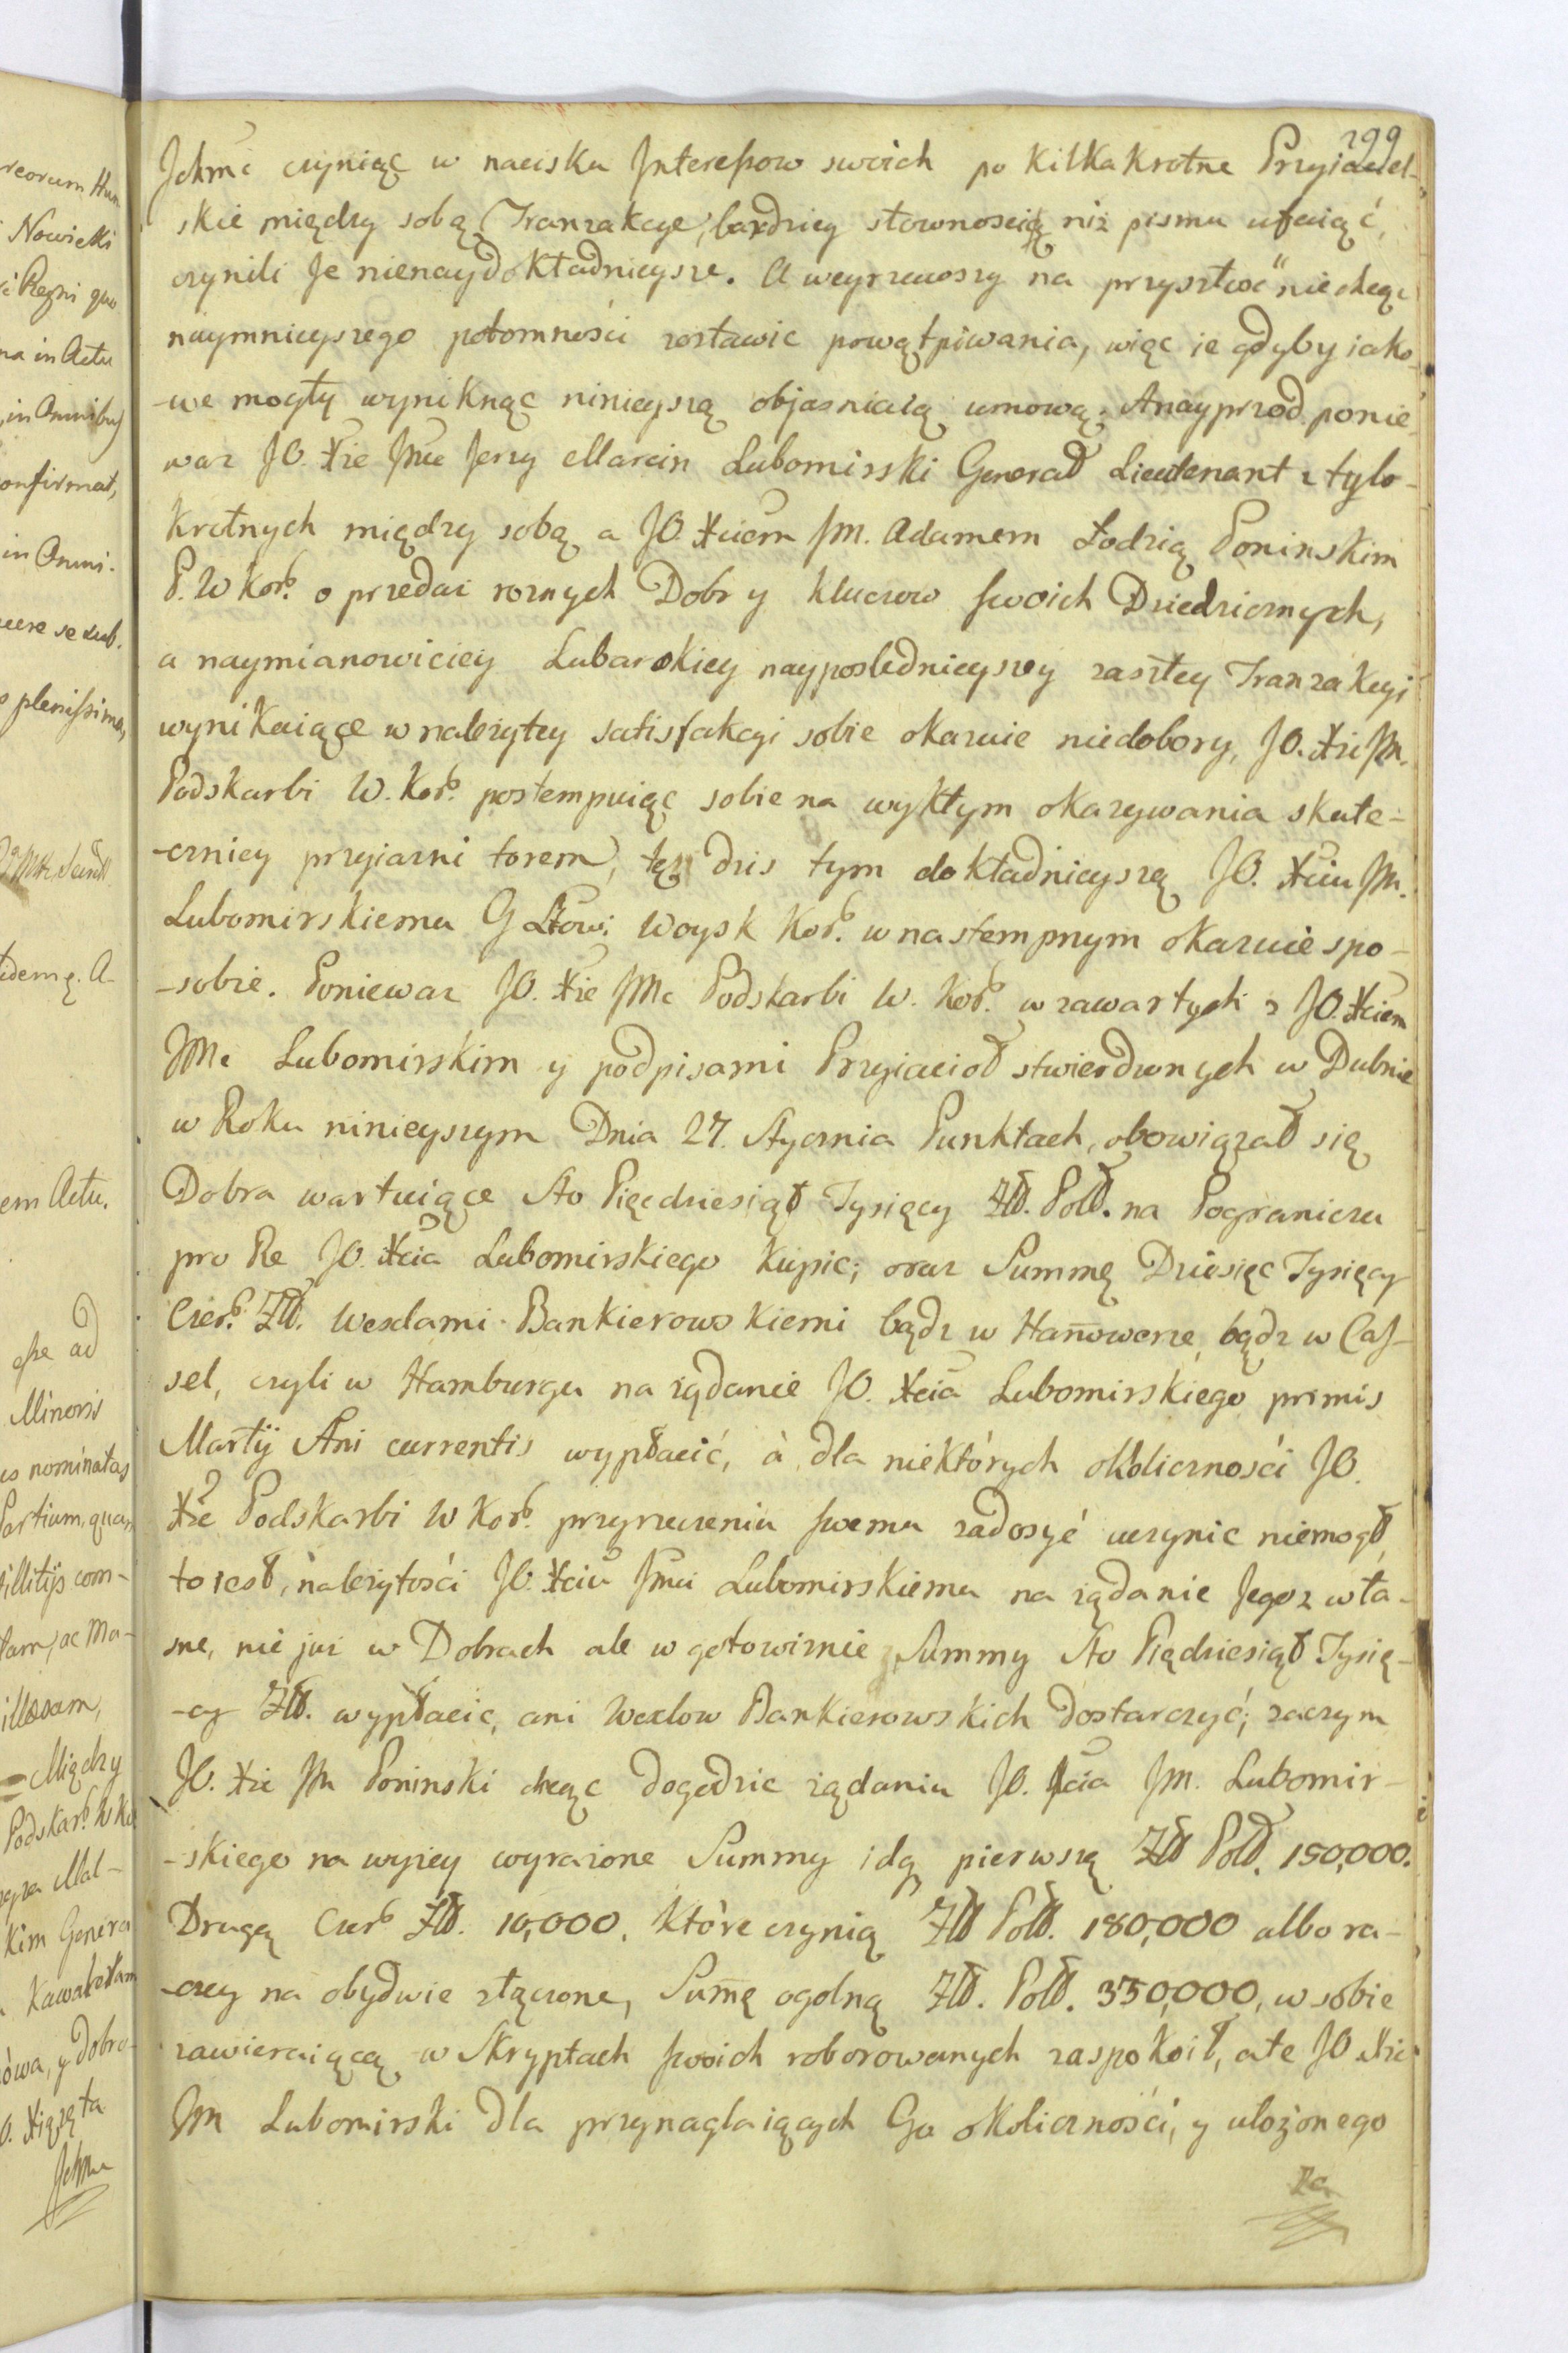 299
Jchmć czyniąc w nacisku Interessow swoich po kilkakrotne Przyiaciel-
skie między sobą Tranzakcye, bardziey słownością niż pismu ufaiąć,
czynili Je nienaydokładnieysze. A weyrzawszy na przyszłość niechcąc
naymnieyszego potomności zostawic powątpiwania, więc ie gdyby iako-
-we mogły wyniknąc ninieyszą objasniaią umową. A nayprzod ponie-
waz JO. Xże Jmć Jerzy Marcin Lubomirski Generał Lieutenant z tylo-
krotnych między sobą a JO. Xciem Jm. Adamem Łodzią Poninskim
P. W Kor. o przedaż roznych Dobr y kluczow swoich Dziedzicznych,
a naymianowiciey Lubarskiey nayposlednieyszey zaszłey Tranzakcyi
wynikaiące w nalezytey satisfakcyi sobie okazuie niedobory, JO. Xże Jm.
Podskarbi W. Kor. postempuiąc sobie na wykłym okazywania skute-
-czniey przyiazni torem, tęż dzis tym dokładnieyszą JO. Xciu Jm.
Lubomirskiemu G Lttowi Woysk Kor. w nastempnym okazuie spo-
-sobie. Poniewaz JO. Xże JMc Podskarbi W. Kor. w zawartych z JO. Xciem
JMc Lubomirskim y podpisami Przyiacioł stwierdzonych w Dubnie
w Roku ninieyszym Dnia 27. Stycznia Punktach, obowiązał się
Dobra wartuiące Sto Pięcdziesiąt Tysięcy Złł. Poll. na Pograniczu
pro Re JO. Xcia Lubomirskiego kupic; oraz Summę Dziesięc Tysięcy
Czer. Złł. Wexlami Bankierowskiemi bądz w Hanowerze, bądz w Cas-
sel, czyli w Hamburgu na ządanie JO. Xcia Lubomirskiego primis
Martij Ani currentis wypłacić, à dla niektórych okolicznosći JO.
Xże Podskarbi W Kor. przyrzeczeniu swemu zadosyć uczynic niemogł,
to iest, nalezytosći JO. Xciu Jmci Lubomirskiemu na ządanie Jegoz wła-
sne, nie juz w Dobrach ale w gotowiznie Summy Sto Piędziesiąt Tysię-
-cy Złł. wypłacic, ani Wexlow Bankierowskich dostarczyć; zaczym
JO. Xże Jm Poninski chcąc dogodzic ządaniu JO. Xcia Jm. Lubomir-
-skiego na wyzey wyrazone Summy idq pierwszą Złł Poll. 150,000.
Drugą Czer. Złł. 10,000. które czynią Złł Poll. 180,000 albo ra-
-czey na obydwie złączone, Sumę ogolną Złł. Poll. 330,000, w sobie
zawieraiącą w Skryptach swoich roborowanych zaspokoił, ale JO Xże
Jm Lubomirski dla przynaglaiących Go okolicznośći, y ułożonego